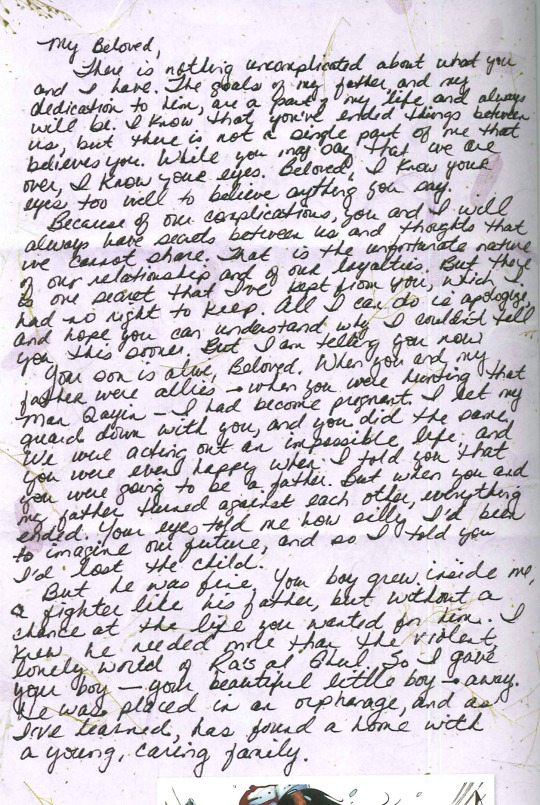 My Beloved,
There is nothing uncomplicated about what you
and I have. The goals of my father, and my
dedication to him, are a part of my life, and always
will be. I know that you've ended things between
us, but there is not a single part of me that
believes you. While you may say that we are
over, I know your eyes. Beloved, I know your
eyes too well to believe anything you say.
Because of our complications, you and I will
always have secrets between us and thoughts that
we cannot share. That is the unfortunate nature
of our relationship and of our loyalties. But there
is one secret that I've kept from you, which I
had no right to keep. All I can do is apologize,
and hope you can understand why I couldn't tell
you this sooner. But I am telling you now
Your son is alive, Beloved. When you and my
father were allies — when you were hunting that
man Qayin — I had become pregnant. I let my
guard down with you, and you did the same.
We were acting out an impossible life, and
you were even happy when I told you that
you were going to be a father. But when you and
my father turned against each other, everything
ended. Your eyes told me how silly I'd been
to imagine our future, and so I told you
I'd lost the child.
But he was fine. Your boy grew inside me,
a fighter like his father, but without a
chance at the life you wanted for him. I
knew he needed more than the violent,
lonely world of Ra's al Ghul. So I gave
your boy — your beautiful little boy — away.
He was placed in an orphanage, and as
I've learned, has found a home with
a young, caring family.